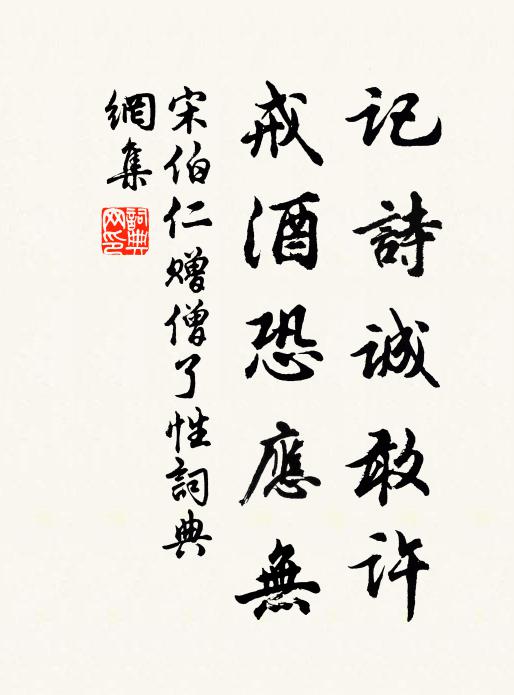 記詩誠敢許
戒酒恐應無
宋伯仁贈僧了性詞典
網集
詞典
网印